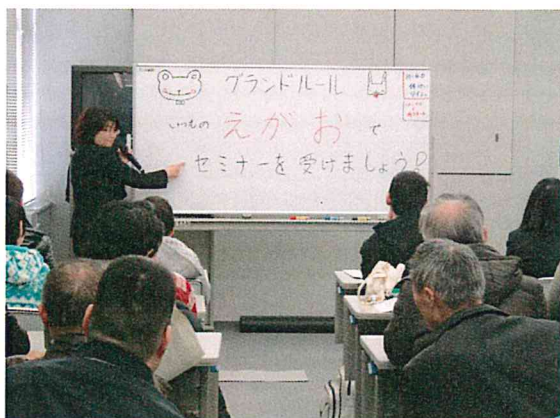 グランドルール
いつもの えがお で
セミナーを受けましょう